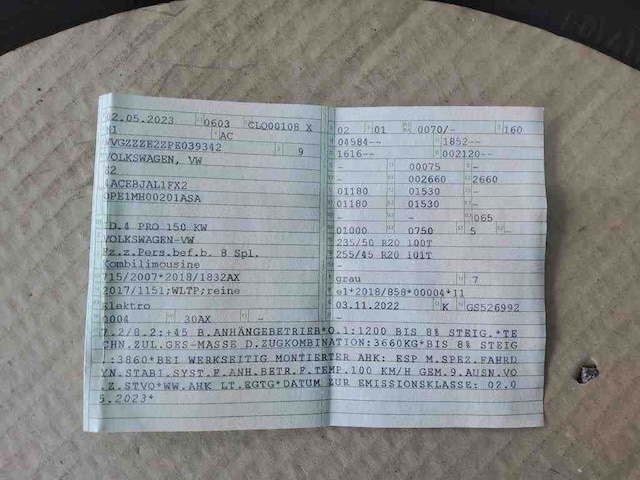 02.05.2023 0603 CLQ00108 X
M1 AC
WVGZZZE2ZPE039342 9
VOLKSWAGEN, VW
E2
ACEBJAL1FX2
0PE1MH00201ASA
ID.4 PRO 150 KW
VOLKSWAGEN-VW
Fz.z.Pers.bef.b. 8 Spl.
Kombilimousine
715/2007*2018/1832AX
2017/1151;WLTP;reine
Elektro
0004 30AX -
02 01 0070/- 160
04584-- 1852--
1616-- 002120--
- 00075 -
- 002660 2660
01180 01530 -
01180 01530 -
- - 065
01000 0750 5 -
235/50 R20 100T
255/45 R20 101T
-
grau 7
e1*2018/858*00004*11
03.11.2022 K GS526992
-
7.2/8.2:+45 B.ANHÄNGEBETRIEB*O.1:1200 BIS 8% STEIG.*TE
CHN.ZUL.GES-MASSE D.ZUGKOMBINATION:3660KG*BIS 8% STEIG
.:3860*BEI WERKSEITIG MONTIERTER AHK: ESP M.SPEZ.FAHRD
YN.STABI.SYST.F.ANH.BETR.F.TEMP.100 KM/H GEM.9.AUSN.VO
.Z.STVO*WW.AHK LT.EGTG*DATUM ZUR EMISSIONSKLASSE: 02.0
5.2023*